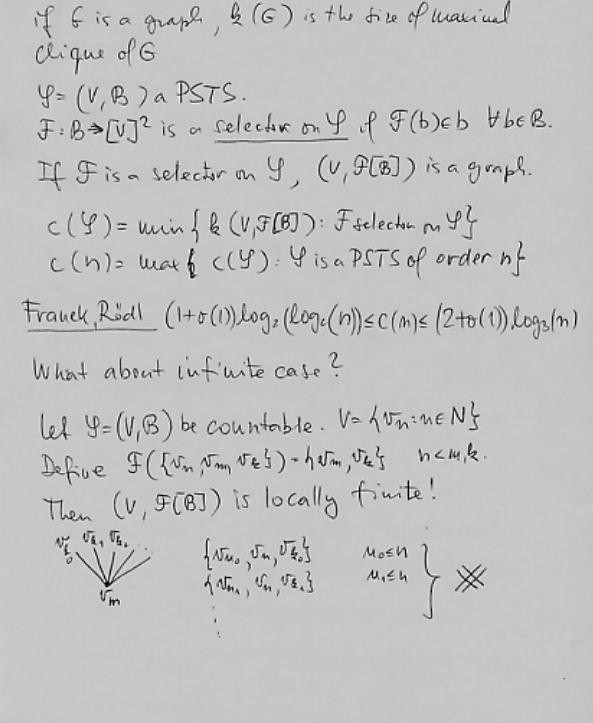 if G is a graph, k(G) is the size of maximal
clique of G
𝒮 = (V, B) a PSTS.
F: B → [V]² is a selector on 𝒮 if F(b) ∈ b ∀b∈B.
If F is a selector on 𝒮, (V, F[B]) is a graph.
c(𝒮) = min { k(V, F[B]) : F selector on 𝒮}
c(n) = max { c(𝒮) : 𝒮 is a PSTS of order n}
Franek, Rödl (1+o(1)) log₂(log₂(n)) ≤ c(n) ≤ (2+o(1)) log₃(n)
What about infinite case?
Let 𝒮 = (V, B) be countable. V = {vₙ : n ∈ N}
Define F({vₙ, vₘ, vₖ}) = {vₘ, vₖ} n < m, k.
Then (V, F[B]) is locally finite!
v_{k₀} v_{k₁} v_{k₂} ... {v_{n₀}, vₙ, v_{k₀}} n₀ ≤ n
{v_{n₁}, vₙ, v_{k₁}} n₁ ≤ n
vₘ